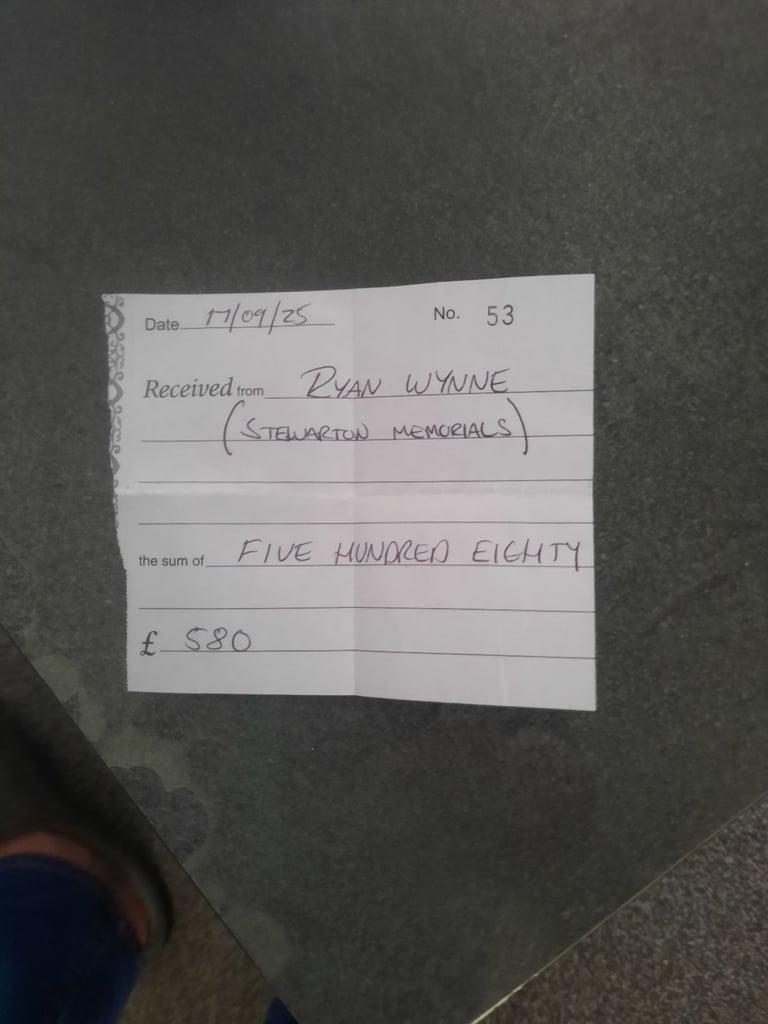 Date 17/09/25 No. 53
Received from RYAN WYNNE
(STEWARTON MEMORIALS)
the sum of FIVE HUNDRED EIGHTY
£ 580